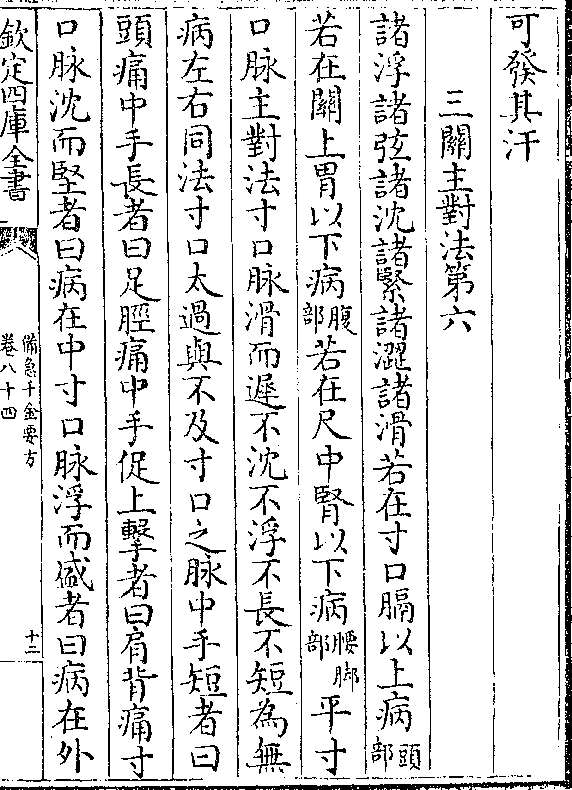 可發其汗
三關主對法第六
諸浮諸弦諸沈諸緊諸澀諸滑若在寸口膈以上病頭部
若在關上胃以下病腹部若在尺中腎以下病腰脚部平寸
口脉主對法寸口脉滑而遲不沈不浮不長不短為無
病左右同法寸口太過與不及寸口之脉中手短者曰
頭痛中手長者曰足脛痛中手促上擊者曰肩背痛寸
口脉沈而堅者曰病在中寸口脉浮而盛者曰病在外
欽定四庫全書
備急千金要方
卷八十四
十二